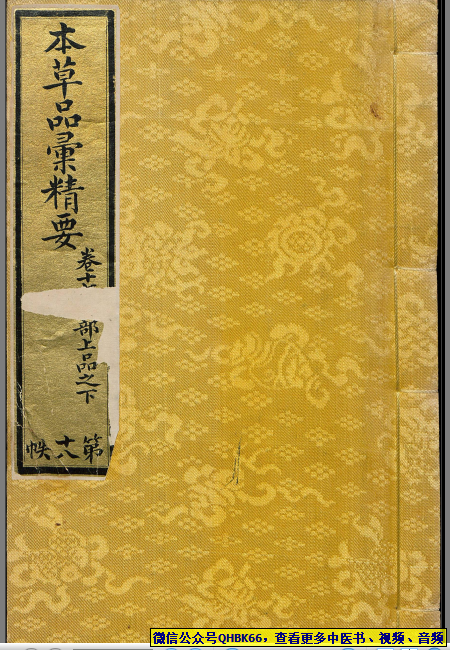 本草品彙精要
卷十
部上品之下
第十八帙
微信公众号QHBK66，查看更多中医书、视频、音频